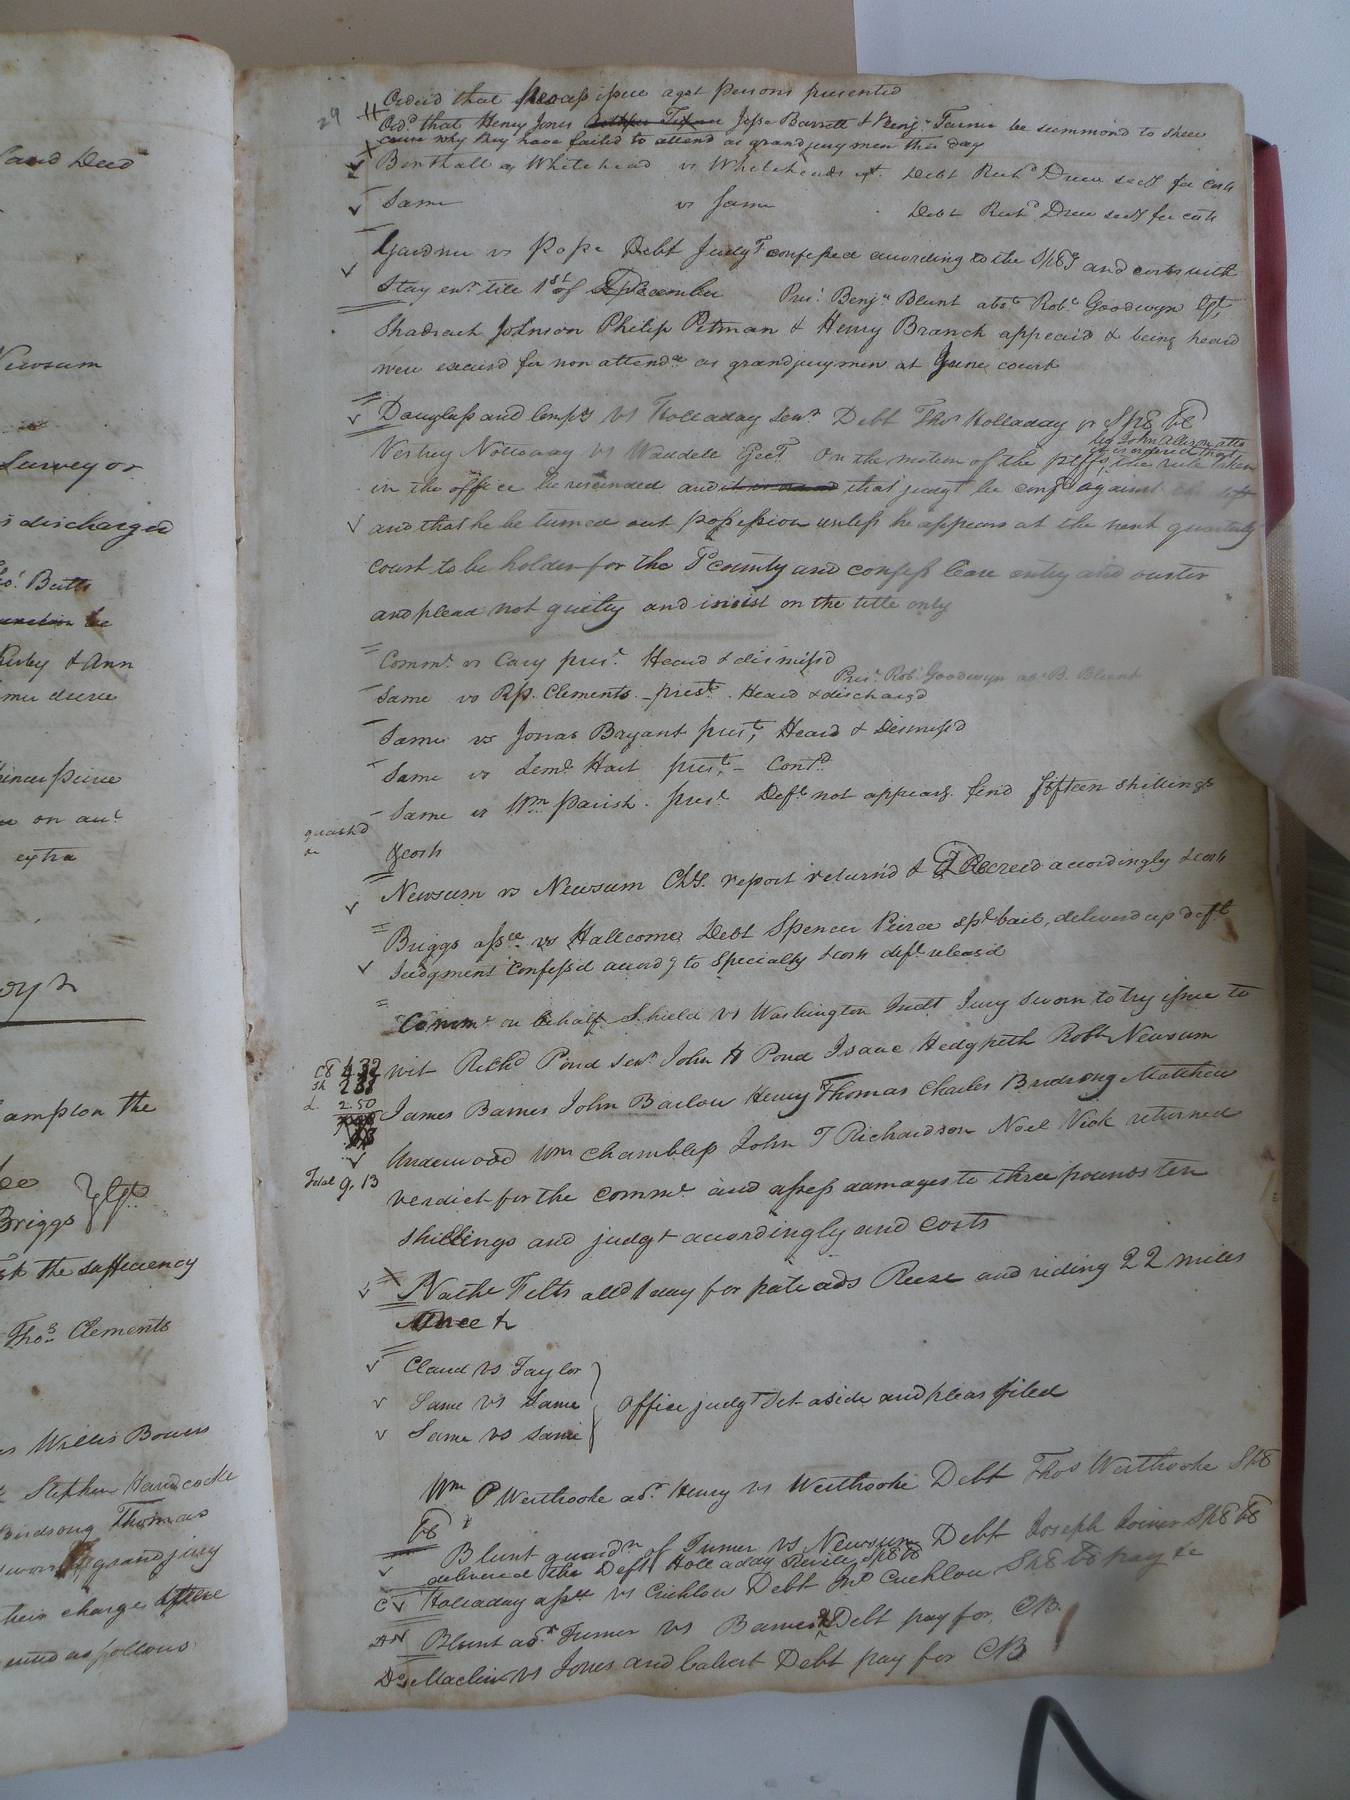 Land Deed
Newsum
Survey or
is discharged
Tho.s Butts
& Ann
me decree
on au.t
extra
ampton the
Briggs
the sufficiency
Tho.s Clements
Willis Bowers
Stephen Handcocke
Birdsong Thomas
sworn grand jury
their charge
ented as follows
29
Ordered that process issue agst persons presented
Ord.d that Henry Jones Jesse Barrett & Benj.n Turner be summond to shew
cause why they have failed to attend as grandjurymen this day
Benthall & Whitehead vs Whiteheads ext. Debt Rich.d Drew secy for costs
Same vs Same Debt Rich.d Drew secy for costs
Gardner vs Pope Debt Judg.t confessed according to the and costs with
Stay ex.n till 1st of December Pres.t Benj.n Blunt abs.t Rob.t Goodwyn Gt.
Shadrach Johnson Philip Pitman & Henry Branch appeard & being heard
were excused for non attend.ce as grandjurymen at June court
Douglass and Comp.y vs Holladay Sen.r Debt Tho.s Holladay Jr Sp8 b8
Vestry Nottoway vs Waudele Eject. On the motion of the pltfs by John Allison atto
it is ordered that the rule taken
in the office be rescinded and it is that judgt be conf.d against the deft
and that he be turned out possession unless he appears at the next quarterly
court to be holden for the s.d county and confess lease entry and ouster
and plead not guilty and insist on the title only
Comm.h vs Cary pres.t Heard & dismiss'd
Pres.t Rob.t Goodwyn abs.t B. Blunt
Same vs Clements pres.t Heard & discharg'd
Same vs Jonas Bryant pres.t Heard & Dismiss'd
Same vs Lem.l Hart pres.t - Cont.d
Same vs Wm Parish. pres.t Deft not appearg. fin'd fifteen shillings
quash'd
& costs
Newsum vs Newsum Ch.y. report return'd & Decreed accordingly & costs
Briggs ass.ee vs Hallcome Debt Spencer Pierce sp.l bail, deliverd up deft
Judgment Confess'd accord.g to Specialty & costs deft releas'd
Comm.h on behalf Shield vs Washington Indt Jury sworn to try issue to
C8 4.32
Sh 2.31
2.50
wit Rich.d Pond sen.r John H Pond Isaac Hedgpeth Robt Newsum
James Barnes John Barlow Henry Thomas Charles Birdsong Matthew
Underwood Wm Chambless John T Richardson Noel Vick returned
Total 9.13
verdict for the Comm.h and assess damages to three pounds ten
shillings and judgt accordingly and costs
Nath.l Felts all.d 1 day for pate ads Reese and riding 22 miles
Once &
Claud vs Taylor
Same vs Same Office judg.t set aside and pleas filed
Same vs same
Wm P Westbrooke ad.r Henry vs Westbrooke Debt Tho.s Westbrooke Sp8
b8
Blunt guard.n of Turner vs Newsum Debt Joseph Joiner Sp8 b8
delivered the Deft Holladay Sp8 b8
Holladay ass.ee vs Crichlow Debt Jn.o Crichlow Sp8 b8 pay &c
Blunt ad.r Turner vs Barnes Debt pay for CB.
Do. Maclin vs Jones and Calvert Debt pay for CB